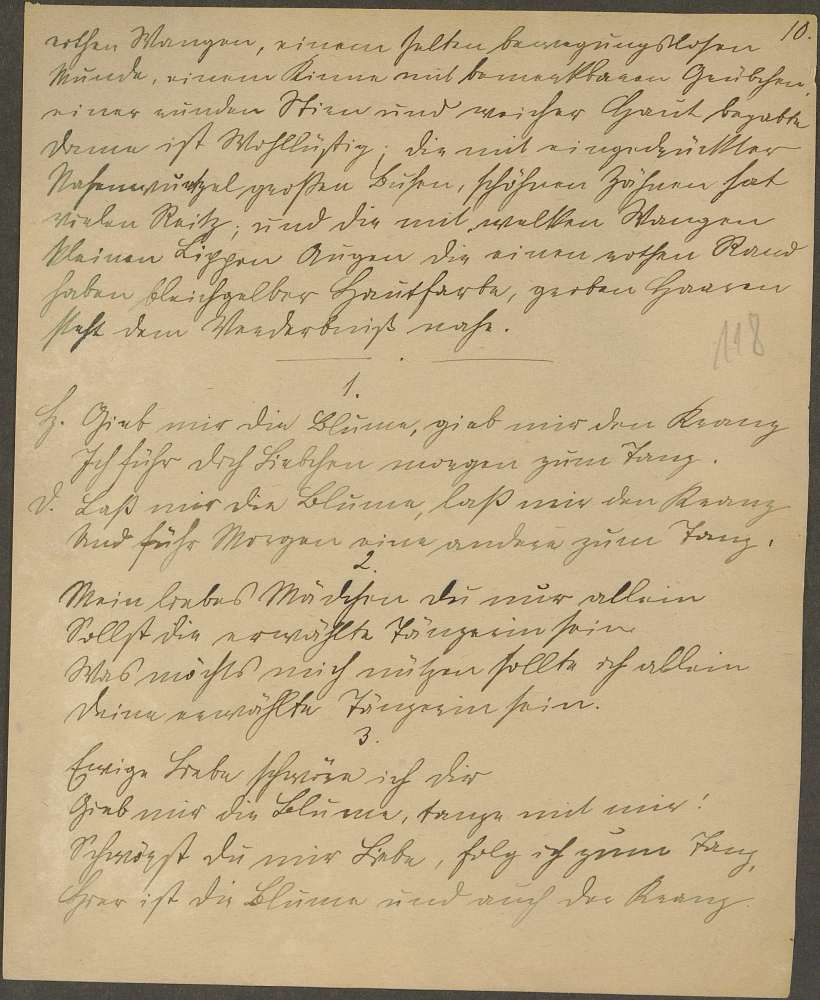 10.
rothen Wangen, einem selten bewegungslosen
Munde, einem Kinne mit bemerkbaren Grübchen,
einer runden Stirn und weicher Haut begabte
Dame ist Wohllüstig; die mit eingedrückter
Nasenwurzel großen Busen, schöhnen Zähnen hat
vielen Reitz; und die mit welken Wangen
kleinen Lippen Augen die einen rothen Rand
haben bleichgelber Hautfarbe, groben Haaren
steht dem Verderbniß nahe.
118
1.
H. Gieb mir die Blume, gieb mir den Kranz
Ich führ dich Liebchen morgen zum Tanz.
D. Laß mir die Blume, laß mir den Kranz
Und führ Morgen eine andere zum Tanz.
2.
Mein liebes Mädchen du nur allein
Sollst die erwählte Tänzerin sein
Was möchts mich nützen sollte ich allein
Deine erwählte Tänzerin sein.
3.
Ewige Liebe schwöre ich dir
Gieb mir die Blume, tanze mit mir!
Schwörst du mir Liebe, folg ich zum Tanz,
Hier ist die Blume und auch der Kranz.